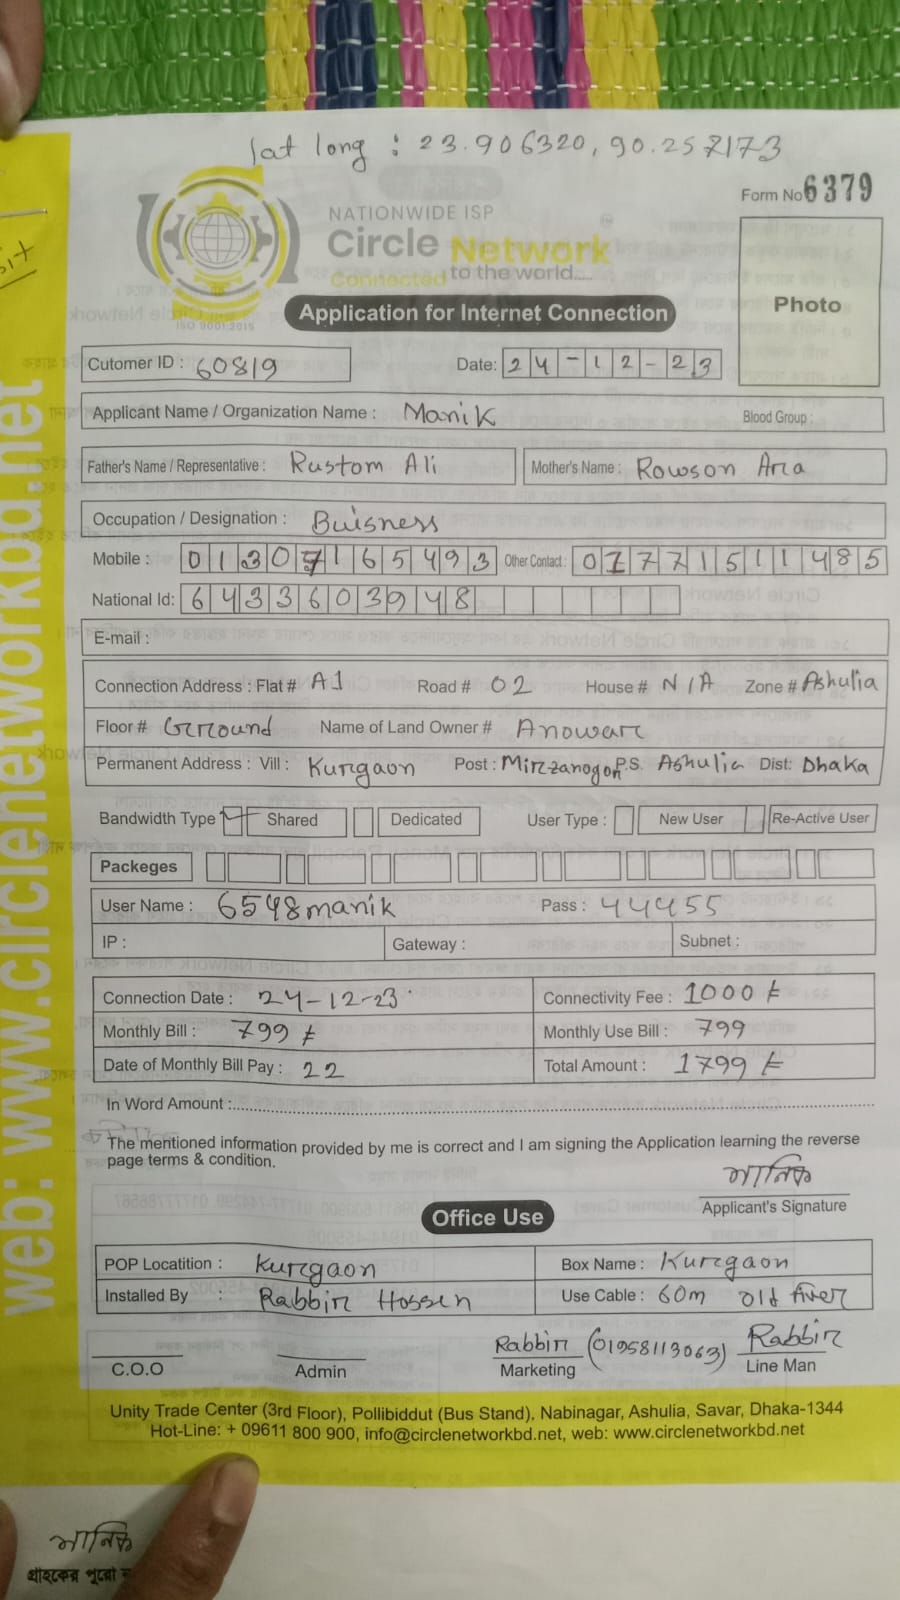 lat long : 23.906320, 90.257173
Form No 6379
NATIONWIDE ISP
Circle Network
Connected to the world.....
ISO 9001:2015
Application for Internet Connection
Photo
Cutomer ID : 60819
Date: 24-12-23
Applicant Name / Organization Name : Manik
Blood Group :
Father's Name / Representative : Rustom Ali
Mother's Name : Rowson Ara
Occupation / Designation : Buisness
Mobile : 01307165493 Other Contact : 01771511485
National Id: 6433603948
E-mail :
Connection Address : Flat # A1 Road # 02 House # N/A Zone # Ashulia
Floor # Grround Name of Land Owner # Anowar
Permanent Address : Vill : Kurgaon Post : Mirzanogon P.S. Ashulia Dist: Dhaka
Bandwidth Type Shared Dedicated User Type : New User Re-Active User
Packeges
User Name : 6598manik Pass : 44455
IP : Gateway : Subnet :
Connection Date : 24-12-23 Connectivity Fee : 1000 ৳
Monthly Bill : 799 ৳ Monthly Use Bill : 799
Date of Monthly Bill Pay : 22 Total Amount : 1799 ৳
In Word Amount :
The mentioned information provided by me is correct and I am signing the Application learning the reverse
page terms & condition.
মানিক
Applicant's Signature
Office Use
POP Locatition : Kurgaon Box Name : Kurgaon
Installed By : Rabbir Hossen Use Cable : 60m old
Rabbir (01958113063) Rabbir
C.O.O Admin Marketing Line Man
Unity Trade Center (3rd Floor), Pollibiddut (Bus Stand), Nabinagar, Ashulia, Savar, Dhaka-1344
Hot-Line: + 09611 800 900, info@circlenetworkbd.net, web: www.circlenetworkbd.net
web: www.circlenetworkbd.net
মানিক
গ্রাহকের পুরো